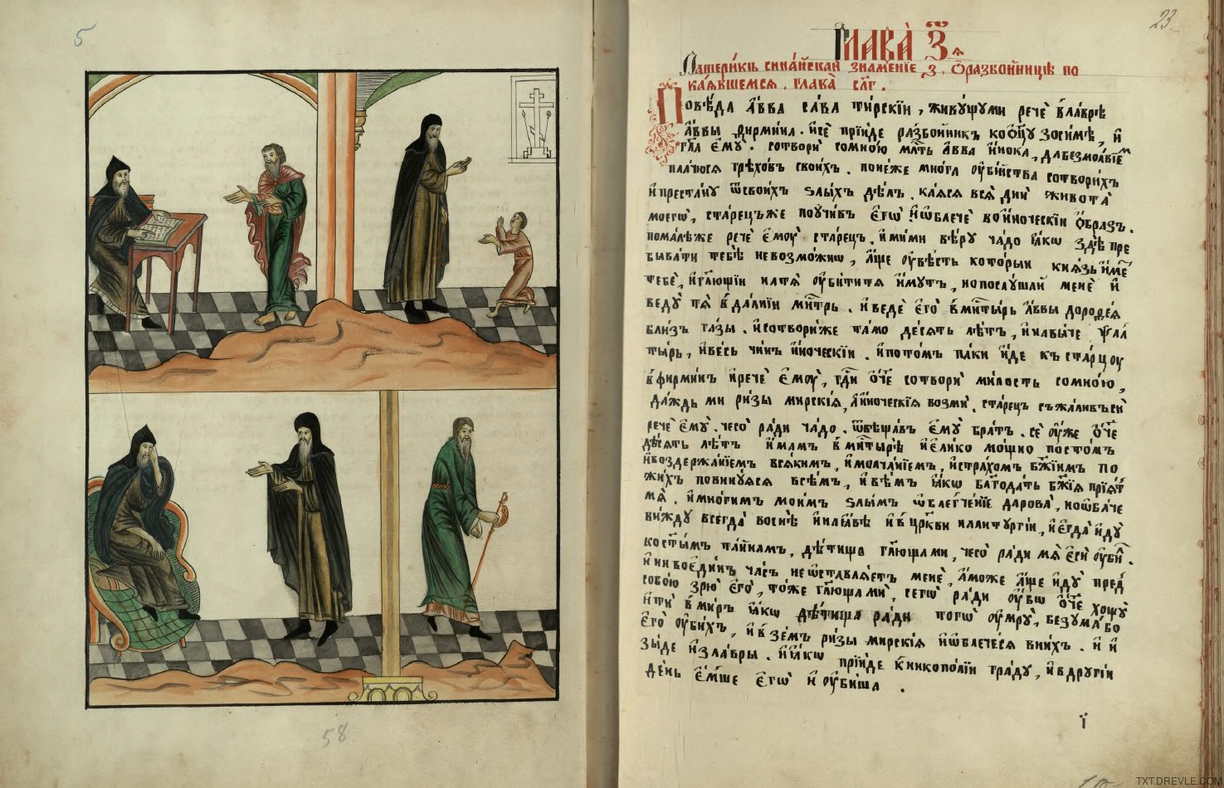 5
58
23
Глава̀ З҃ꙗ
Патери́къ сина́йскаꙗ знаме́нїе з҃. Ѡ҆разбо́йницѣ по
каꙗ́вшемсꙗ. глава̀ рл҃г.
Повѣ́да а҆́вва са́ва ти́рскїи, живꙋ́щꙋми речѐ вла́врѣ
а҆́ввы фирмина. і҆сѐ прїи́де разбо́йникъ коѻц҃ꙋ̀ зоси́мѣ, и҆
гл҃а є҆мꙋ̀. сотворѝ сомно́ю мл҇ть а҆́вва и҆́нока, дабезмо́лвїем
пла́чюсѧ грѣхо́въ свои́хъ. поне́же мно́га ᲂу҆бі́йства сотвори́хъ
и҆преста́нꙋ ѿсвои́хъ ѕлы́хъ дѣ́лъ. ка́ꙗсѧ всѧ̀ дни̑ живота̀
моегѡ̀, ста́рецъже поꙋчи́въ є҆гѡ̀ и҆ѡ҆блечѐ вои́ноческїи ѻ҆́бразъ.
помалѣ́же речѐ є҆мꙋ̀ ста́рецъ. и҆ми́ми вѣ́рꙋ ча́до ꙗ҆́кѡ здѣ̀ пре
быва́ти тебѣ̀ невозмо́жнѡ, а҆́ще ᲂу҆вѣ́сть которыи кнѧ́зь и҆ме
тебѐ, и҆гл҃ющїи на́тѧ ᲂу҆би́тити и҆́мꙋтъ, нопослꙋ́шай менѐ и҆
ведꙋ̀ тѧ̀ вда́лнїи мн҇трь. и҆ведѐ є҆го̀ вмн҇ты́рь а҆́ввы дороѳе́ꙗ
бли́зъ га́зы. и҆сотвори́же та́мо де́сѧть лѣ́тъ, и҆навы́че ѱал
ты́рь, и҆ве́сь чи́нъ и҆́ноческїи. и҆пото́мъ па́ки и҆́де къ ста́рцꙋ
вфирми́нъ и҆речѐ є҆мꙋ̀, гд҇и ѻ҆́ч҃е сотворѝ ми́лость сомно́ю,
да́ждь ми ри́зы мирскі́ꙗ, а҆и́ноческїꙗ возмѝ. ста́рецъ съжа́ливъси
речѐ є҆мꙋ̀. чесо̀ ра́ди ча́до. ѿвѣща́въ є҆мꙋ̀ бра́тъ. сѐ ᲂу҆́же ѻ҆́ч҃е
де́сѧть лѣ́тъ и҆́мамъ вмн҇тырѣ̀ и҆є҆ли́ко мо́щно посто́мъ
и҆воздержа́нїемъ всѧ́кимъ, и҆молча́нїемъ, и҆стра́хомъ бж҃їимъ по
жи́хъ повинꙋ́ꙗсѧ всѣ́мъ, и҆вѣ́мъ ꙗ҆́кѡ блг҃ода́ть бж҃їꙗ прїꙗ́т
мѧ̀. и҆мно́гимъ мои́мъ ѕлы́мъ ѡ҆блегче́нїе дарова̀, но ѻ҆ба́че
ви́ждꙋ всегда̀ воснѐ и҆наꙗ҆́вѣ и҆вц҃ркви налитꙋргі́и, и҆є҆гда̀ и҆дꙋ̀
кост҃ы́мъ та́йнамъ, дѣ́тища гл҃юща ми, чесо̀ ра́ди мѧ̀ є҆сѝ ᲂу҆би́л.
и҆нивоеди́нъ ча́съ неѡ҆ставлѧ́етъ менѐ, а҆́може а҆́ще и҆дꙋ̀ пред
собо́ю зрю̀ є҆го̀, то́же гл҃юща ми, сегѡ̀ ра́ди ᲂу҆бѡ ѻ҆́ч҃е хощꙋ̀
и҆тѝ вми́ръ ꙗ҆́кѡ дѣ́тища ра́ди тогѡ̀ ᲂу҆мрꙋ̀, безꙋма̀ бо
є҆го̀ ᲂу҆би́хъ, и҆взе́мъ ри́зы мирскі́ꙗ и҆ѡ҆блече́сѧ вни́хъ. и҆ и҆
зы́де и҆зла́вры. и҆ꙗ҆́кѡ прїи́де кникопо́лїи гра́дꙋ, и҆вдрꙋгі́и
де́нь є҆́мше є҆гѡ̀ и҆ ᲂу҆би́ша.
ї
TXT.DREVLE.COM